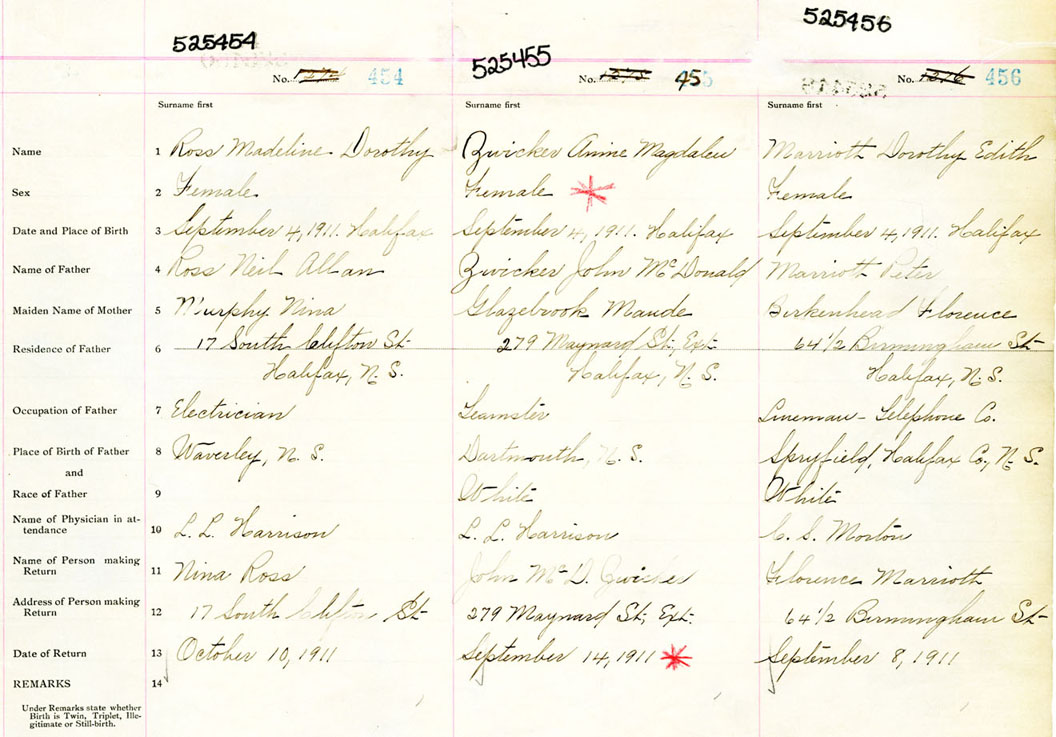 525454 525455 525456
No. 1274 454 No. 1275 455 No. 1276 456
Surname first Surname first Surname first
Name 1 Ross Madeline Dorothy Zwicker Annie Magdalen Marrioth Dorothy Edith
Sex 2 Female Female Female
Date and Place of Birth 3 September 4, 1911. Halifax September 4, 1911. Halifax September 4, 1911. Halifax
Name of Father 4 Ross Neil Allan Zwicker John McDonald Marrioth Peter
Maiden Name of Mother 5 Murphy Nina Glazebrook Maude Birkenhead Florence
Residence of Father 6 17 South Clifton St 279 Maynard St., Ext. 64 1/2 Birmingham St
Halifax, N.S. Halifax, N.S. Halifax, N.S.
Occupation of Father 7 Electrician Teamster Lineman - Telephone Co.
Place of Birth of Father 8 Waverley, N.S. Dartmouth, N.S. Spryfield, Halifax Co., N.S.
and
Race of Father 9 White White
Name of Physician in at-
tendance 10 L.L. Harrison L.L. Harrison C.S. Morton
Name of Person making
Return 11 Nina Ross John McD. Zwicker Florence Marrioth
Address of Person making
Return 12 17 South Clifton St 279 Maynard St., Ext. 64 1/2 Birmingham St
Date of Return 13 October 10, 1911 September 14, 1911 September 8, 1911
REMARKS 14
Under Remarks state whether
Birth is Twin, Triplet, Ille-
gitimate or Still-birth.